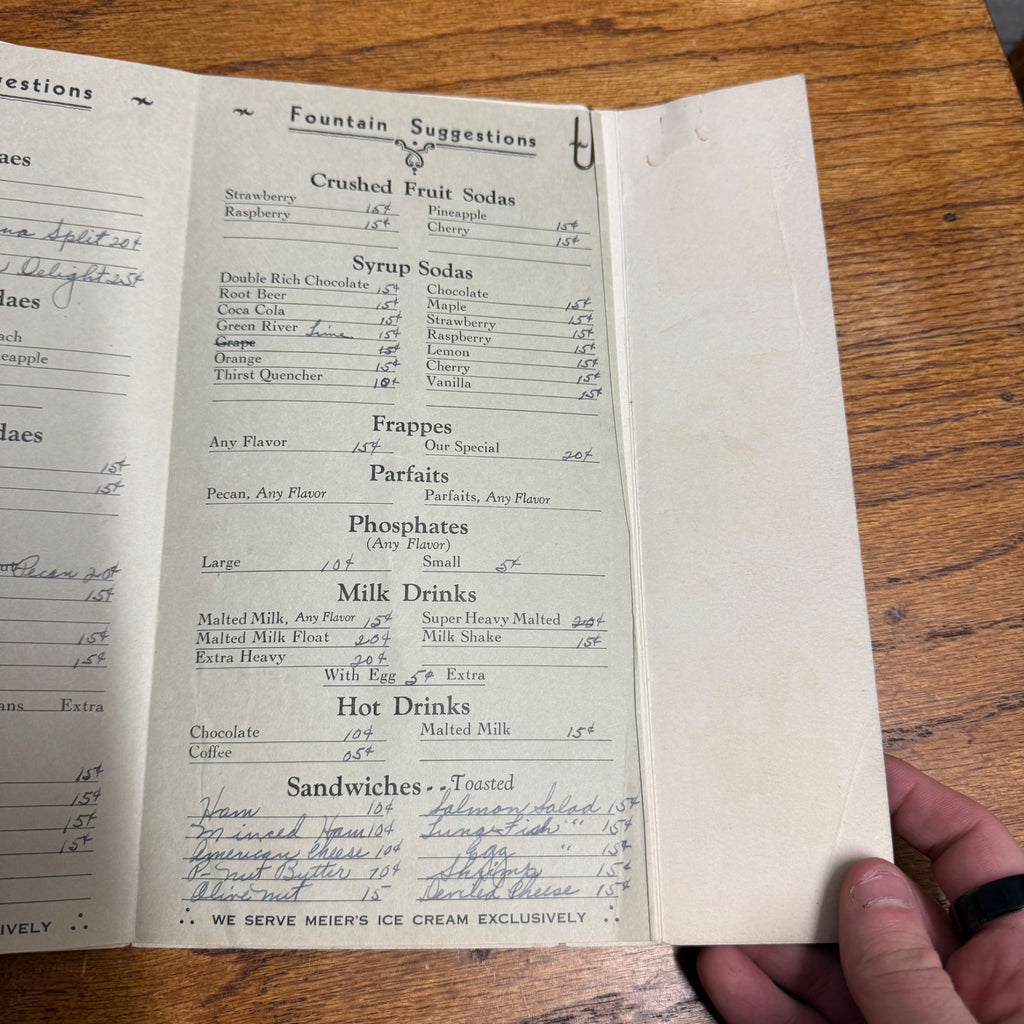 gestions
aes
na Split 20¢
Delight 25¢
daes
ach
eapple
daes
15¢
15¢
Pecan 20¢
15¢
15¢
15¢
ans Extra
15¢
15¢
15¢
15¢
IVELY
Fountain Suggestions
Crushed Fruit Sodas
Strawberry 15¢
Raspberry 15¢
Pineapple 15¢
Cherry 15¢
Syrup Sodas
Double Rich Chocolate 15¢
Root Beer 15¢
Coca Cola 15¢
Green River Lime 15¢
Grape 15¢
Orange 15¢
Thirst Quencher 10¢
Chocolate 15¢
Maple 15¢
Strawberry 15¢
Raspberry 15¢
Lemon 15¢
Cherry 15¢
Vanilla 15¢
Frappes
Any Flavor 15¢
Our Special 20¢
Parfaits
Pecan, Any Flavor
Parfaits, Any Flavor
Phosphates
(Any Flavor)
Large 10¢
Small 5¢
Milk Drinks
Malted Milk, Any Flavor 15¢
Malted Milk Float 20¢
Extra Heavy 20¢
Super Heavy Malted 20¢
Milk Shake 15¢
With Egg 5¢ Extra
Hot Drinks
Chocolate 10¢
Coffee 05¢
Malted Milk 15¢
Sandwiches -- Toasted
Ham 10¢
Minced Ham 10¢
American Cheese 10¢
P-nut Butter 10¢
Olive nut 15
Salmon Salad 15¢
Tuna Fish " 15¢
Egg " 15¢
Shrimp 15¢
Deviled Cheese 15¢
WE SERVE MEIER'S ICE CREAM EXCLUSIVELY